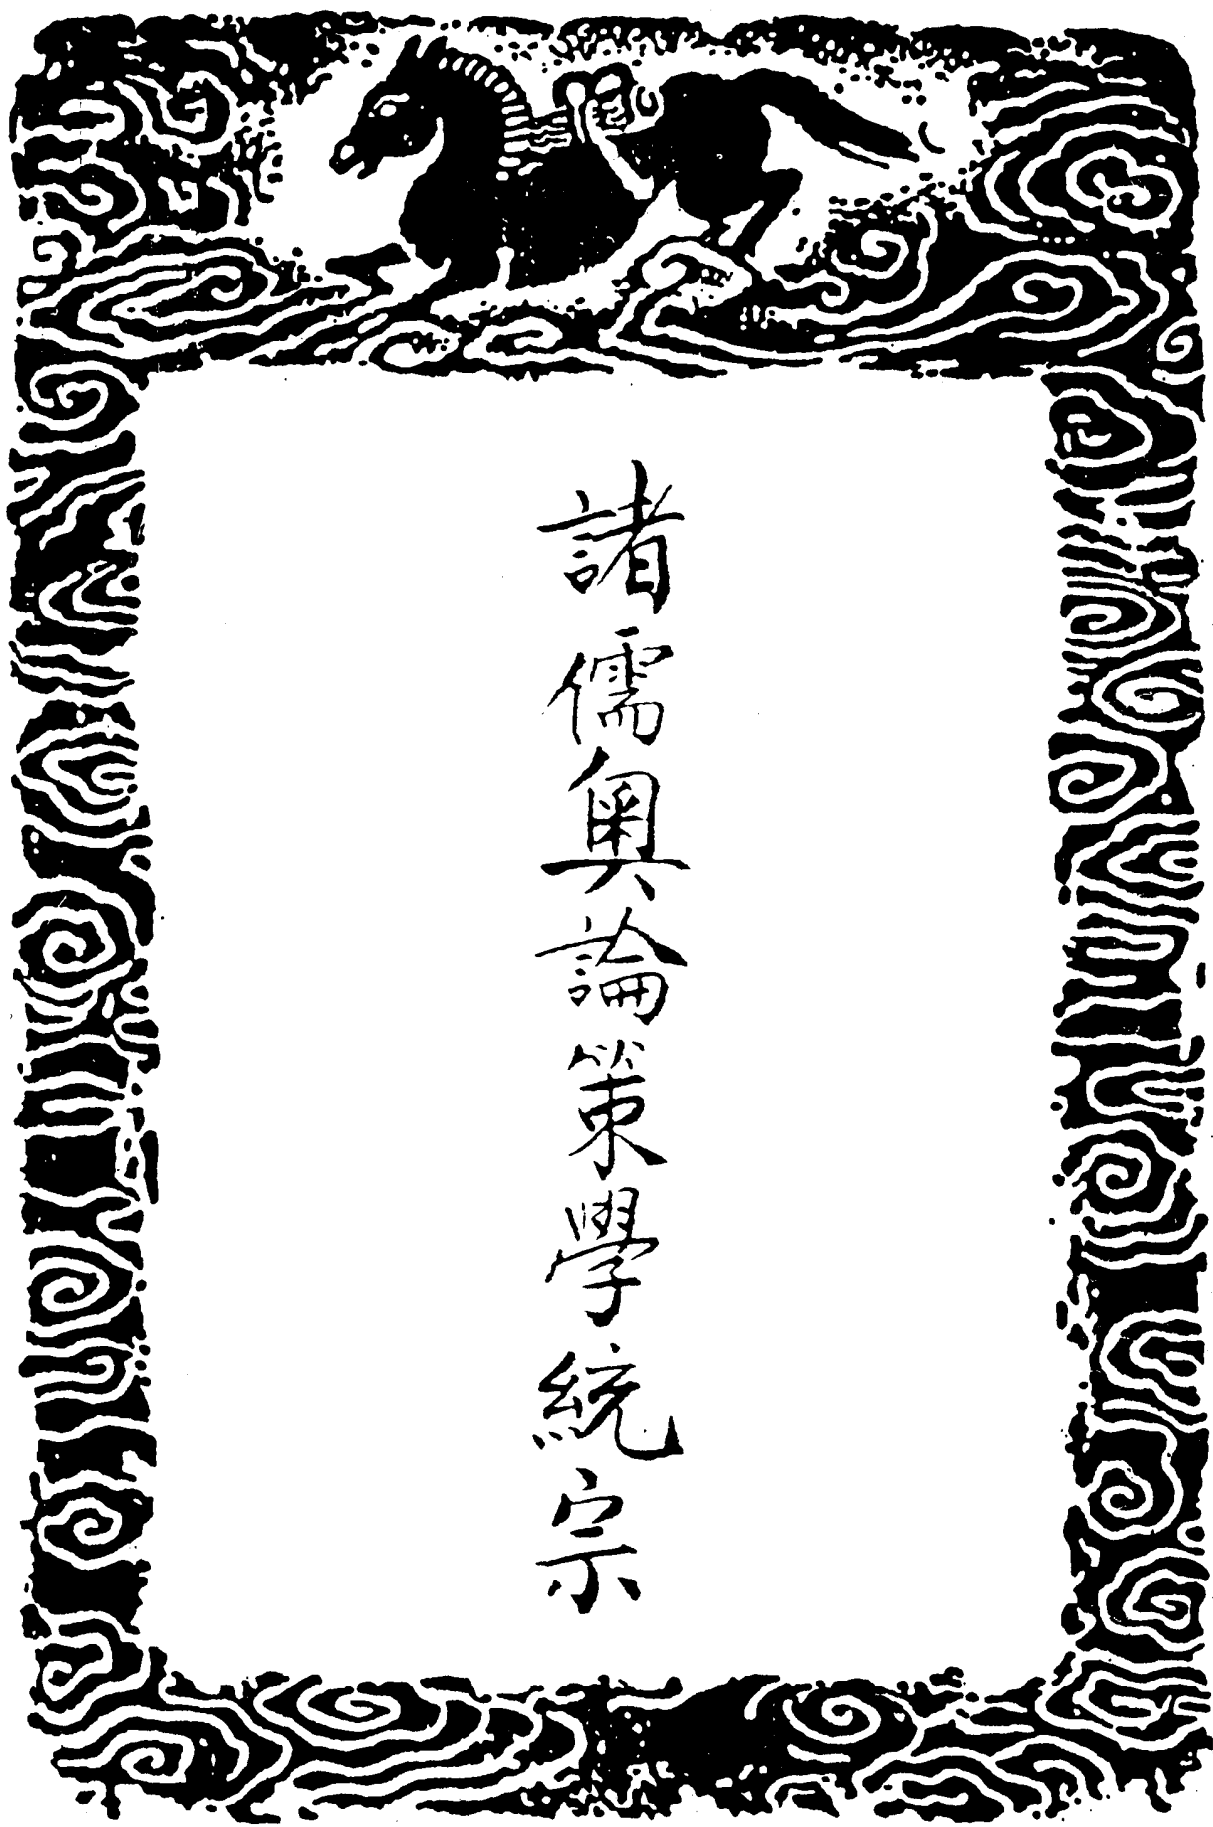 諸儒奥論策學統宗